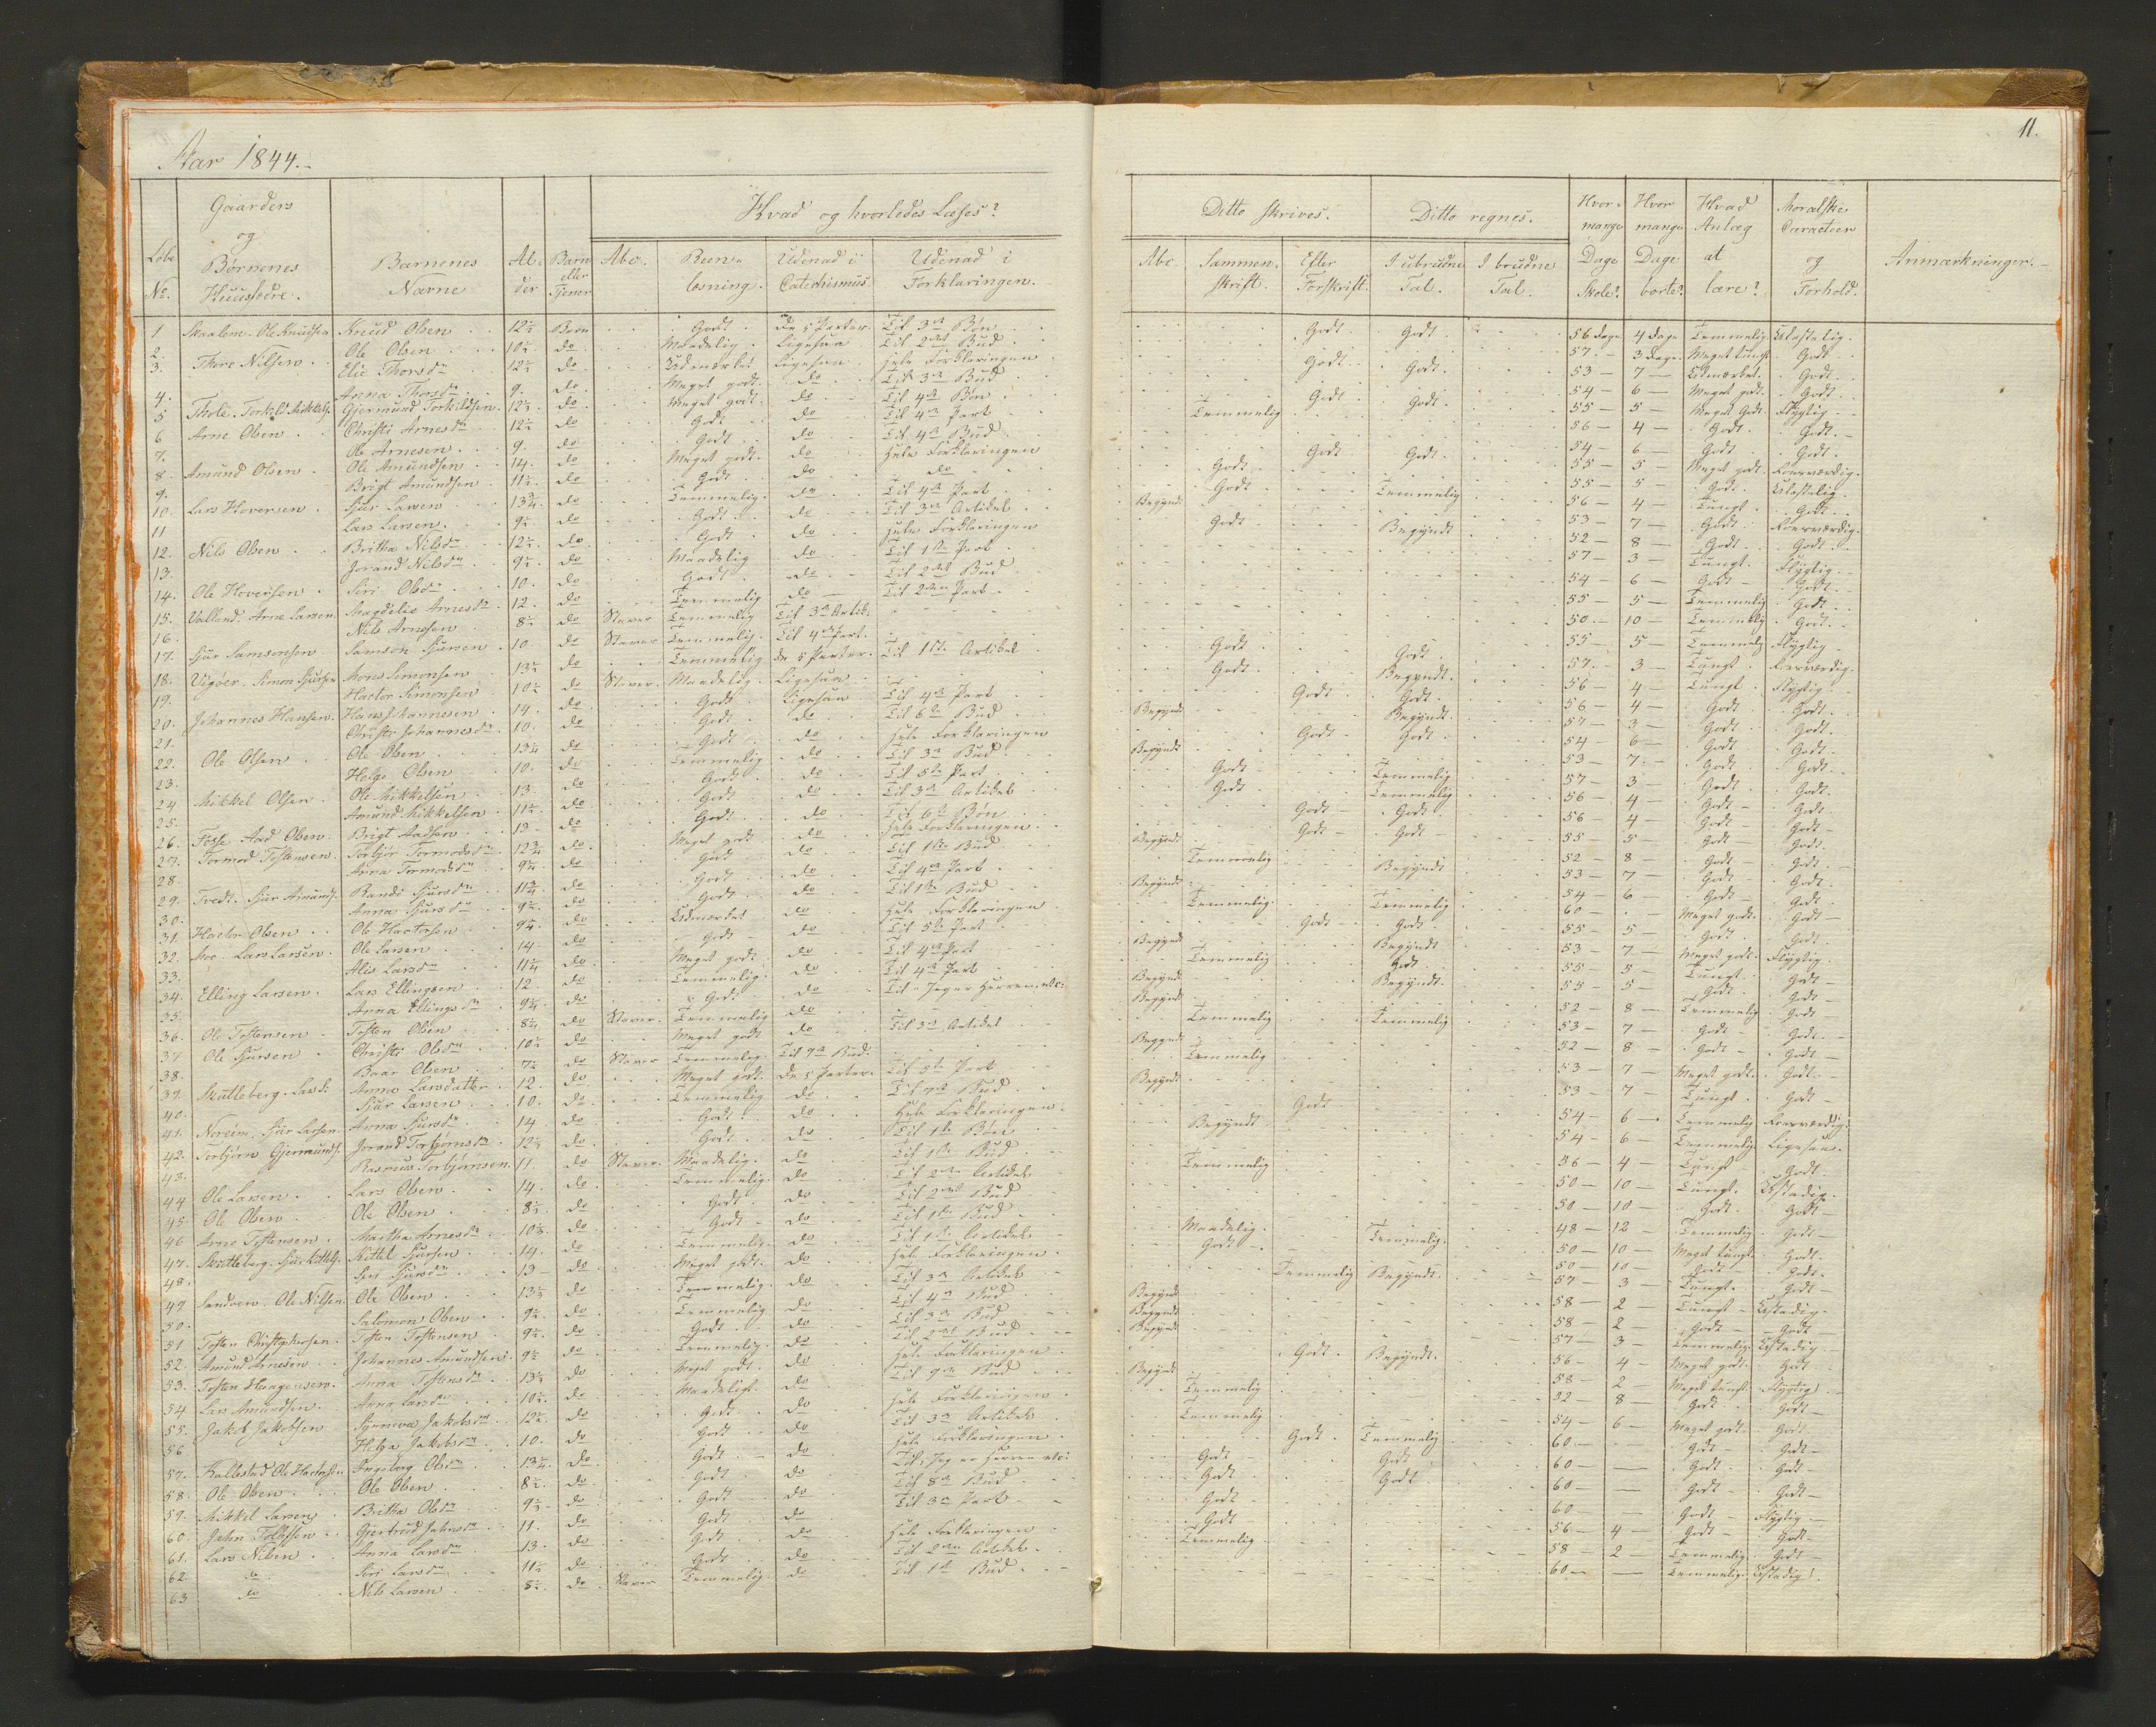 Aar 1844.
11.
Löbe No.
Gaarders og Börnenes Huusfædre.
Barnenes Navne
Alder
Barn eller Tjener
Hvad og hvorledes Læses?
Abc.
Reenlæsning.
Udenad i Catechismus.
Udenad i Forklaringen.
Ditto skrives.
Abc.
Sammenskrift.
Efter Forskrift.
Ditto regnes.
I ubrudne Tal.
I brudne Tal.
Hvor mange Dage Skole?
Hvor mange Dage borte?
Hvad Anlæg at lære?
Moralske Caracteer og Forhold.
Anmærkninger.
1 Skaalem. Ole Knudsen Knud Olsen 12½ Barn Godt De 5 Parter Til 3die Bön Godt Godt 56 dage 4 dage Temmelig
2. Ole Olsen 10½ do Maadelig Ligesaa Til 2det Bud 57 - 3 dage Meget tungt Godt
3. Thore Nilsen Elie Thorsdr 12½ do Udmærket Ligesaa Hele Forklaringen Godt Godt 53 - 7 - Udmærket Godt
4. Anna Thorsdr 9 do Meget godt do Til 3die Bud 54 - 6 - Meget godt Godt
5 Thole. Torkild Mikkels. Gjermund Torkildsen 12½ do Meget godt do Til 4de Bön Godt Godt 55 - 5 - Meget Godt Flygtig
6 Arne Olsen Christi Arnesdr 12½ do Godt do Til 4de Part Temmelig 56 - 4 - Godt Godt
7. Ole Arnesen 9 do Godt do Til 4de Bud 54 - 6 - Godt Godt
8. Amund Olsen Ole Amundsen 14. do Meget godt do Hele Forklaringen Godt Godt 55 - 5 - Meget godt Roesværdig
9. Brigt Amundsen 11½ do Godt do do Godt 55 - 5 - Godt
10. Lars Haversen Sjur Larsen 13¾ do Temmelig do Til 4de Part Godt Temmelig 56 - 4 - Tungt Godt
11 Lars Larsen 9½ do Godt do Til 3die Artikel Begyndt 53 - 7 - Godt Roesværdig
12. Nils Olsen Britha Nilsdr 12½ do Godt do Hele Forklaringen Godt Begyndt 52 - 8 - Godt Godt
13. Jorand Nilsdr 9½ do Maadelig do Til 1ste Part 57 - 3 - Tungt Flygtig
14. Ole Haversen Siri Olsdr 10. do Godt do Til 2det Bud 54 - 6 - Godt Godt
15. Valland. Arne Larsen Magdelie Arnesdr 12. do Temmelig do Til 2den Part 55 - 5 - Temmelig Godt
16. Nils Arnesen 8½ do Staver Temmelig Til 3die Artik. 50 - 10 - Temmelig Godt
17. Sjur Samsonsen Samson Sjursen 10 do Staver Temmelig Til 4de Part 55 - 5 - Temmelig Flygtig
18. Vigöer. Simon Sjursen Mons Simonsen 13½ do Temmelig De 5 Parter Til 1ste Artikel Godt Godt 57 - 3 - Tungt Roesværdig
19. Hactor Simonsen 10½ do Staver Maadelig Ligesaa Godt Begyndt 56 - 4 - Tungt Flygtig
20. Johannes Hansen Hans Johannesen 14. do Godt Ligesaa Til 4de Part Godt Godt 56 - 4 - Godt Godt
21. Christi Johannesdr 10. do Godt do Til 6te Bud Begyndt Begyndt 57 - 3 - Godt Godt
22. Ole Olsen Ole Olsen 13¼ do Godt do Hele Forklaringen Godt Godt 54 - 6 - Godt Godt
23. Helge Olsen 10. do Temmelig do Til 3die Bud Begyndt 53 - 7 - Godt Godt
24 Mikkel Olsen Ole Mikkelsen 13. do Godt do Til 5te Part Godt Temmelig 57 - 3 - Godt Godt
25. Amund Mikkelsen 11½ do Godt do Til 3die Artikel Godt Temmelig 56 - 4 - Godt Godt
26. Fosse Aad Olsen Brigt Aadsen 13 do Godt do Til 6te Bön Godt Godt 56 - 4 - Godt Godt
27. Tormod Tostensen Torbjör Tormodsdr 12¾ do Meget godt do Hele Forklaringen Godt Godt 55 - 5 - Godt Godt
28. Anna Tormodsdr 9¼ do Godt do Til 1ste Bud Begyndt 52 - 8 - Godt Godt
29. Tredt. Sjur Amunds. Randi Sjursdr 11¾ do Godt do Til 4de Part Temmelig Begyndt 53 - 7 - Godt Godt
30. Anna Sjursdr 9½ do Godt do Til 1ste Bud Begyndt 54 - 6 - Godt Godt
31. Hactor Olsen Ole Hactorsen 9¼ do Udmærket do Hele Forklaringen Temmelig Temmelig 60 - Meget godt Godt
32. Moe. Lars Larsen Ole Larsen 14. do Godt do Til 5te Part Godt Godt 55 - 5 - Godt Godt
33. Alis Larsdr 11¼ do Meget godt do Til 4de Part Begyndt Begyndt 53 - 7 - Meget godt Flygtig
34. Elling Larsen Lars Ellingsen 12. do Temmelig do Til 4de Part Temmelig Godt 55 - 5 - Tungt Godt
35. Anna Ellingsdr 9¼ do Godt do Til "Jeg er Herren" etc: Begyndt Begyndt 55 - 5 - Godt Godt
36. Ole Tostensen Tosten Olsen 8¼ do Staver Temmelig do Begyndt 52 - 8 - Temmelig Godt
37 Ole Sjursen Christi Olsdr 10½ do Meget godt do Til 3die Artikel Temmelig Temmelig 53 - 7 - Godt Godt
38. Baar Olsen 7½ do Staver Temmelig Til 9de Bud Begyndt 52 - 8 - Godt Godt
39. Skutleberg. Lars S. Anna Larsdatter 12 do Meget godt De 5 Parter Til 5te Part Temmelig 53 - 7 - Meget godt Godt
40. Sjur Larsen 10. do Temmelig do Til 7de Bud Begyndt 53 - 7 - Tungt Godt
41. Noreim. Sjur Larsen Anna Sjursdr 14 do Godt do Hele Forklaringen Godt 54 - 6 - Temmelig Roesværdig
42. Torbjörn Gjermunds. Jorand Torbjörnsdr 12½ do Godt do Til 1ste Bön Begyndt 54 - 6 - Temmelig Ligesaa
43. Rasmus Torbjörnsen 11. do Staver Maadelig do Til 1ste Bud 56 - 4 - Tungt Godt
44 Ole Larsen Lars Olsen 14. do Temmelig do Til 2den Artikel Temmelig 50 - 10 - Tungt Ustadig
45. Ole Olsen Ole Olsen 8½ do Godt do Til 2det Bud 50 - 10 - Godt Godt
46 Arne Tostensen Martha Arnesdr 10½ do Godt do Til 1ste Bud 48 - 12 - Temmelig Godt
47. Skutleberg. Sjur Kittels. Kittel Sjursen 14. do Temmelig do Til 1ste Artikel Maadelig Temmelig 50 - 10 - Meget tungt Godt
48. Siri Sjursdr 13 do Meget godt do Hele Forklaringen Godt 50 - 10 - Godt Godt
49 Sandven. Ole Nilsen Ole Olsen 13½ do Temmelig do Til 3die Artikel Temmelig Begyndt 57 - 3 - Tungt Godt
50. Salomon Olsen 9½ do Temmelig do Til 4de Bud Begyndt 58 - 2 - Tungt Ustadig
51 Tosten Christophersen Tosten Tostensen 9½ do Godt do Til 3die Bud Begyndt 58 - 2 - Godt Godt
52. Amund Arnesen Johannes Amundsen 9½ do Temmelig do Til 2det Bud Begyndt 57 - 3 - Temmelig Ustadig
53. Tosten Haagensen Anna Tostensdr 13½ do Meget godt do Hele Forklaringen Godt Begyndt 56 - 4 - Meget godt Godt
54 Lars Amundsen Anna Larsdr 10½ do Maadeligt do Til 9de Bud Begyndt 58 - 2 - Meget tungt Flygtig
55. Jakob Jakobsen Synneva Jakobsdr 12½ do Godt do Hele Forklaringen Temmelig 52 - 8 - Godt Godt
56 Helga Jakobsdr 10. do Godt do Til 3die Artikel Temmelig 54 - 6 - Meget godt Godt
57. Kallestad Ole Hactorsen Ingeborg Olsdr 13¼ do Godt do Hele Forklaringen Godt Temmelig 60 - Godt Godt
58. Ole Olsen Ole Olsen 8½ do Godt do Til "Jeg er Herren etc: Godt Godt 60 - Godt Godt
59. Mikkel Larsen Britha Olsdr 9½ do Godt do Til 8de Bud Godt Godt 60 - Godt Godt
60. Jahn Gjertrud Jahnsdr 11. do Godt do Til 3die Part Godt 60 Godt Flygtig
61. Lars Nilsen Anna Larsdr 13. do Godt do Hele Forklaringen Godt 56 - 4 - Godt Godt
62 do Siri Larsdr 11½ do Godt do Til 2den Artikel Temmelig 58 - 2 - Temmelig Godt
63 do Nils Larsen 8½ do Staver Temmelig do Til 1ste Bud 60 - Temmelig Ustadig